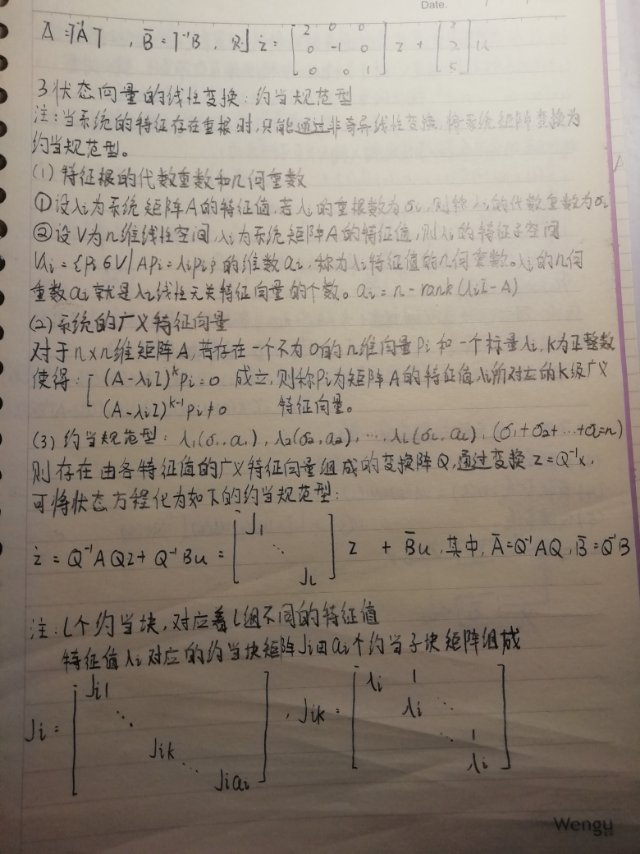 Date.
Ā = T⁻¹AT , B̄ = T⁻¹B , 则 ż = [2 0 0; 0 -1 0; 0 0 1] z + [ 2 5] u
3 状态向量的线性变换：约当规范型
注：当系统的特征存在重根时，只能通过非奇异线性变换，将系统矩阵变换为
约当规范型。
(1) 特征根的代数重数和几何重数
①设λi为系统矩阵A的特征值，若λi的重根数为σi，则称λi的代数重数为σi
②设V为n维线性空间，λi为系统矩阵A的特征值，则λi的特征子空间
Ui = {Pi∈V | APi = λiPi} 的维数αi，称为λi特征值的几何重数。λi的几何
重数αi就是λi线性无关特征向量的个数。αi = n - rank(λiI - A)
(2) 系统的广义特征向量
对于n×n维矩阵A，若存在一个不为0的n维向量Pi和一个标量λi，K为正整数
使得：[ (A-λiI)ᵏPi = 0 成立，则称Pi为矩阵A的特征值λi所对应的K级广义
(A-λiI)ᵏ⁻¹Pi ≠ 0 特征向量。
(3) 约当规范型：λ1(σ1,α1)，λ2(σ2,α2)，…，λl(σl,αl)，(σ1+σ2+…+σl=n)
则存在由各特征值的广义特征向量组成的变换阵Q，通过变换 z = Q⁻¹x，
可将状态方程化为如下的约当规范型：
ż = Q⁻¹AQz + Q⁻¹Bu = [J1 ⋱ Jl] z + B̄u，其中，Ā=Q⁻¹AQ，B̄=Q⁻¹B
注：L个约当块，对应着L组不同的特征值
特征值λi对应的约当块矩阵Ji由αi个约当子块矩阵组成
Ji = [Ji1 ⋱ Jik ⋱ Jiαi]，Jik = [λi 1 λi ⋱ ⋱ 1 λi]
Wengu